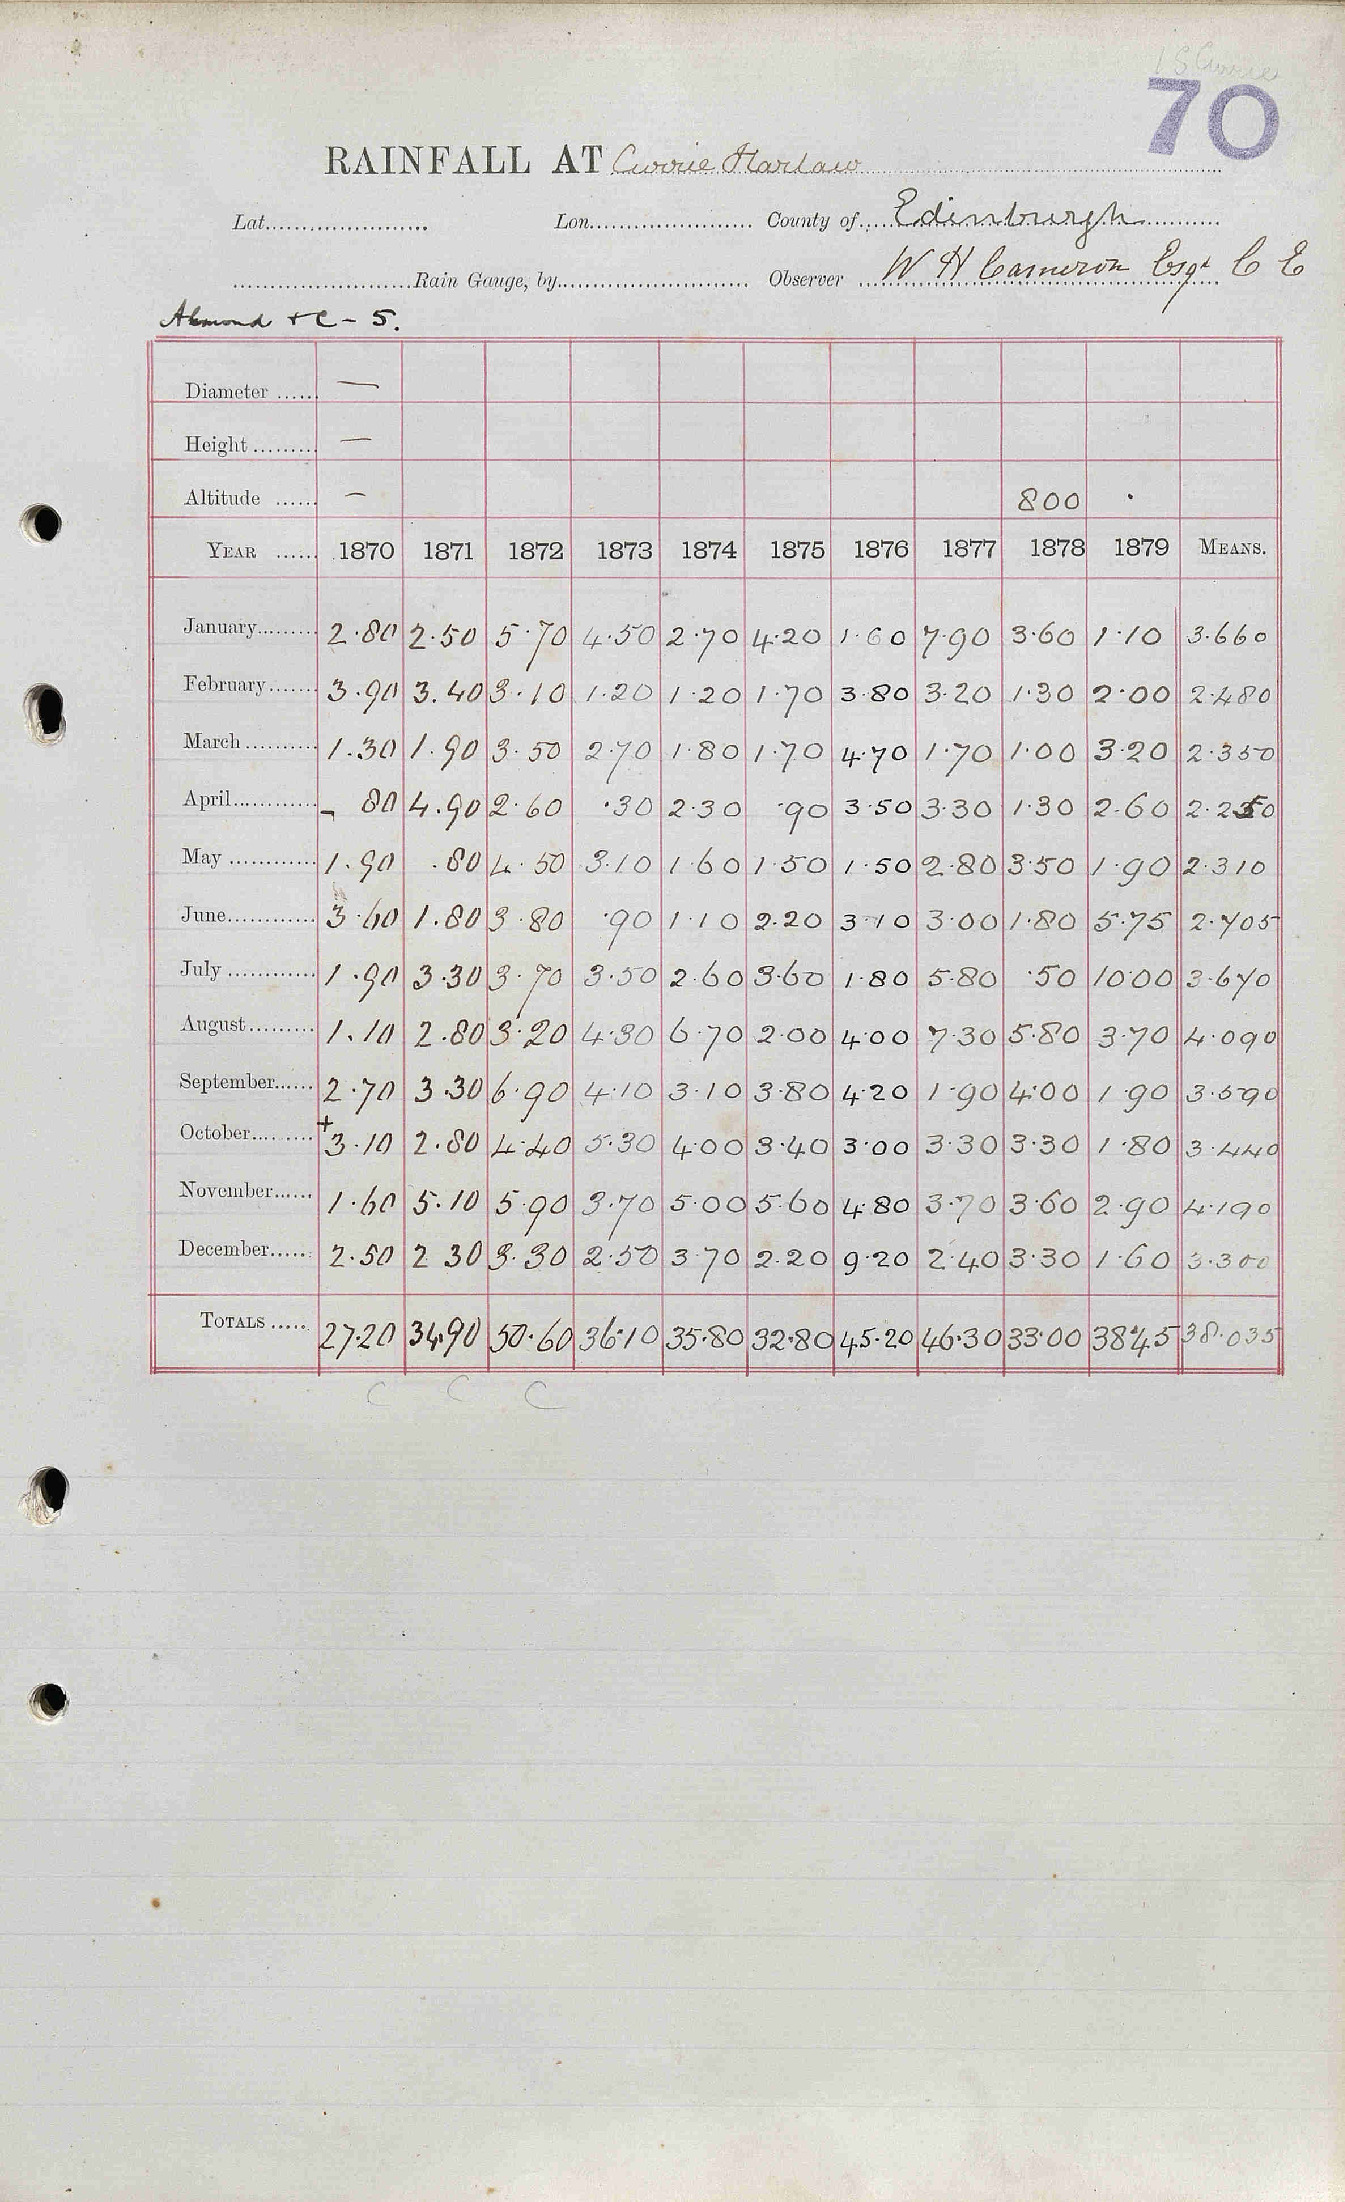 70
RAINFALL AT Currie Harlaw
Lat...................... Lon....................... County of Edinburgh
Rain Gauge, by........................... Observer W H Cameron Esqr C E
Almond + C - 5.
Diameter ...... —
Height ......... —
Altitude ...... — 800 ·
YEAR ...... 1870 1871 1872 1873 1874 1875 1876 1877 1878 1879 MEANS.
January......... 2.80 2.50 5.70 4.50 2.70 4.20 1.60 7.90 3.60 1.10 3.660
February....... 3.90 3.40 3.10 1.20 1.20 1.70 3.80 3.20 1.30 2.00 2.480
March .......... 1.30 1.90 3.50 2.70 1.80 1.70 4.70 1.70 1.00 3.20 2.350
April............ – 80 4.90 2.60 .30 2.30 .90 3.50 3.30 1.30 2.60 2.250
May ............ 1.90 .80 4.50 3.10 1.60 1.50 1.50 2.80 3.50 1.90 2.310
June............ 3.60 1.80 3.80 .90 1.10 2.20 3.10 3.00 1.80 5.75 2.705
July ............ 1.90 3.30 3.70 3.50 2.60 3.60 1.80 5.80 .50 10.00 3.670
August......... 1.10 2.80 3.20 4.30 6.70 2.00 4.00 7.30 5.80 3.70 4.090
September...... 2.70 3.30 6.90 4.10 3.10 3.80 4.20 1.90 4.00 1.90 3.590
October......... + 3.10 2.80 4.40 5.30 4.00 3.40 3.00 3.30 3.30 1.80 3.440
November...... 1.60 5.10 5.90 3.70 5.00 5.60 4.80 3.70 3.60 2.90 4.190
December...... 2.50 2.30 3.30 2.50 3.70 2.20 9.20 2.40 3.30 1.60 3.300
TOTALS ..... 27.20 34.90 50.60 36.10 35.80 32.80 45.20 46.30 33.00 38.45 38.035
C C C